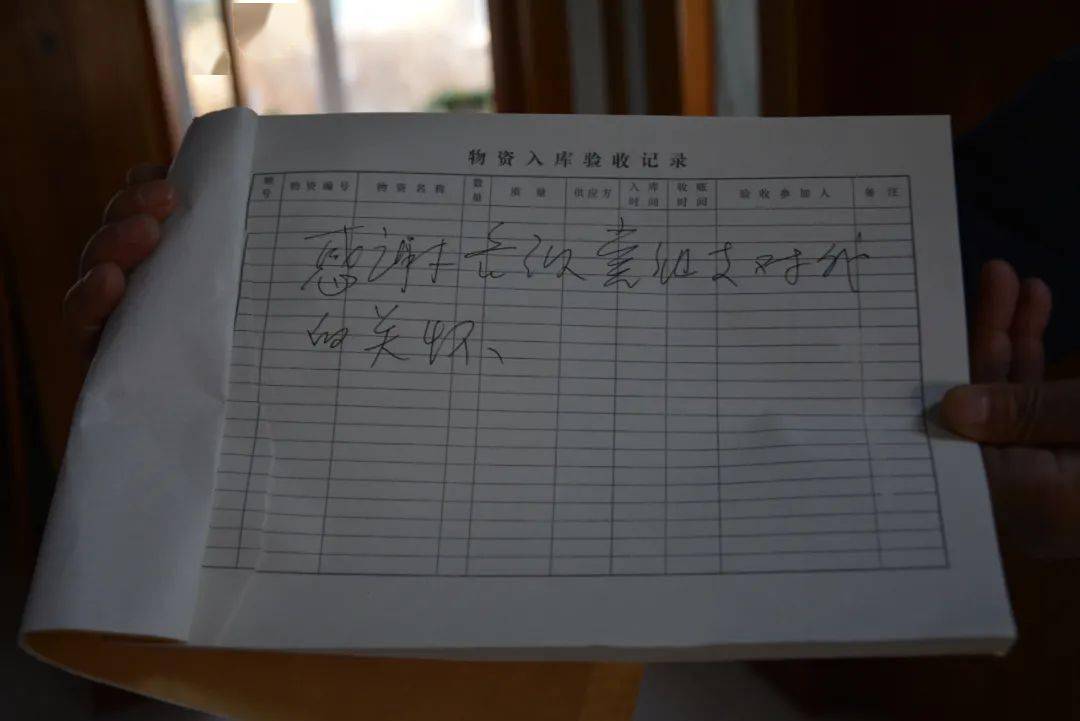 物资入库验收记录
号 物资编号 物资名称 数量 质量 供应方 入库时间 收账时间 验收参加人 备注
感谢 组 对
的关怀、